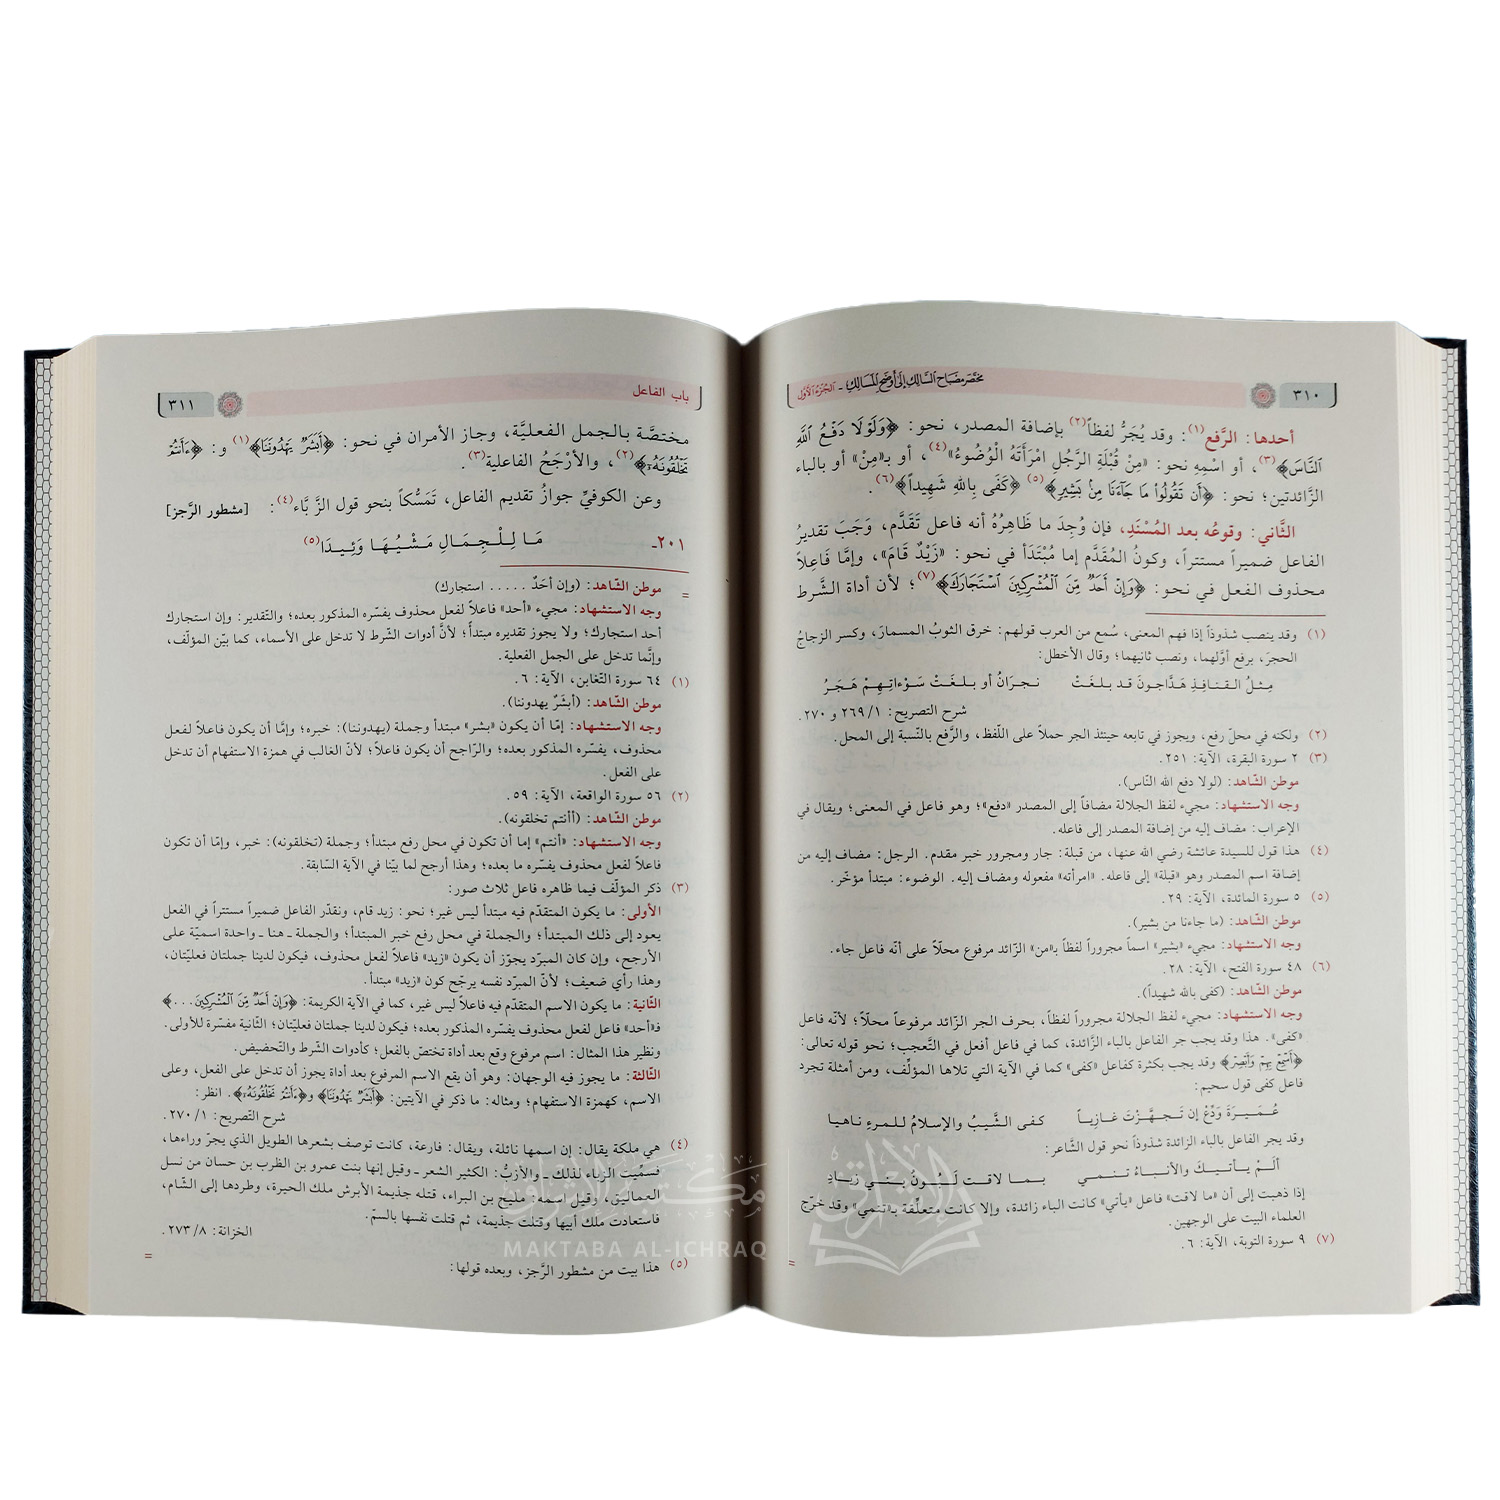 ٣١٠
مختصر مصباح السالك إلى أوضح المسالك - الجزء الأول
أحدها: الرَّفع(١): وقد يُجَرُّ لفظاً(٢) بإضافة المصدر، نحو: ﴿وَلَوْلَا دَفْعُ اللَّهِ
النَّاسَ﴾(٣)، أو اسْمِهِ نحو: «مِنْ قُبْلَةِ الرَّجُلِ امْرَأَتَهُ الْوُضُوءُ»(٤)، أو بـ«مِنْ» أو بالباء
الزَّائدتين؛ نحو: ﴿أَن تَقُولُوا مَا جَاءَنَا مِنْ بَشِيرٍ﴾(٥) ﴿كَفَى بِاللهِ شَهِيداً﴾(٦).
الثَّاني: وقوعُه بعد المُسْنَدِ، فإن وُجِدَ ما ظَاهِرُهُ أنه فاعل تَقَدَّم، وَجَبَ تقديرُ
الفاعل ضميراً مستتراً، وكونُ المُقَدَّم إما مُبْتَدَأ في نحو: «زَيْدٌ قَامَ»، وإمَّا فَاعِلاً
محذوف الفعل في نحو: ﴿وَإِنْ أَحَدٌ مِّنَ الْمُشْرِكِينَ اسْتَجَارَكَ﴾(٧)؛ لأن أداة الشَّرط
(١) وقد ينصب شذوذاً إذا فهم المعنى، سُمع من العرب قولهم: خرق الثوبُ المسمارَ، وكسر الزجاجُ
الحجرَ، برفع أوَّلهما، ونصب ثانيهما؛ وقال الأخطل:
مِثلُ القنافِذِ هَدَّاجونَ قد بلغَتْ نجرَانُ أو بلغَتْ سَوْءاتِهِمْ هَجَرُ
شرح التصريح: ٢٦٩/١ و ٢٧٠.
(٢) ولكنه في محلّ رفع، ويجوز في تابعه حينئذ الجر حملاً على اللّفظ، والرَّفع بالنّسبة إلى المحل.
(٣) ٢ سورة البقرة، الآية: ٢٥١.
موطن الشّاهد: (لولا دفع الله النّاس).
وجه الاستشهاد: مجيء لفظ الجلالة مضافاً إلى المصدر «دفع»؛ وهو فاعل في المعنى؛ ويقال في
الإعراب: مضاف إليه من إضافة المصدر إلى فاعله.
(٤) هذا قول للسيدة عائشة رضي الله عنها، من قبلة: جار ومجرور خبر مقدم. الرجل: مضاف إليه من
إضافة اسم المصدر وهو «قبلة» إلى فاعله. «امرأته» مفعوله ومضاف إليه. الوضوء: مبتدأ مؤخّر.
(٥) ٥ سورة المائدة، الآية: ٢٩.
موطن الشّاهد: (ما جاءنا من بشير).
وجه الاستشهاد: مجيء «بشير» اسماً مجروراً لفظاً بـ«من» الزّائد مرفوع محلّاً على أنّه فاعل جاء.
(٦) ٤٨ سورة الفتح، الآية: ٢٨.
موطن الشّاهد: (كفى بالله شهيداً).
وجه الاستشهاد: مجيء لفظ الجلالة مجروراً لفظاً، بحرف الجر الزّائد مرفوعاً محلّاً؛ لأنّه فاعل
«كفى». هذا وقد يجب جر الفاعل بالباء الزَّائدة، كما في فاعل أفعل في التَّعجب؛ نحو قوله تعالى:
﴿أَسْمِعْ بِهِمْ وَأَبْصِرْ﴾ وقد يجب بكثرة كفاعل «كفى» كما في الآية التي تلاها المؤلّف، ومن أمثلة تجرد
فاعل كفى قول سحيم:
عُمَيرَةَ وَدِّعْ إن تَجهَّزْتَ غازِياً كفى الشَّيبُ والإسلامُ للمرءِ ناهيا
وقد يجر الفاعل بالباء الزائدة شذوذاً نحو قول الشَّاعر:
ألَمْ يأتيكَ والأنباءُ تنمي بما لاقت لَبُونُ بني زيادِ
إذا ذهبت إلى أن «ما لاقت» فاعل «يأتي» كانت الباء زائدة، وإلا كانت متعلّقة بـ«تنمي» وقد خرّج
العلماء البيت على الوجهين.
(٧) ٩ سورة التوبة، الآية: ٦.
=
باب الفاعل
٣١١
مختصَّة بالجمل الفعليَّة، وجاز الأمران في نحو: ﴿أَبَشَرٌ يَهْدُونَنَا﴾(١) و: ﴿ءَأَنتُمْ
تَخْلُقُونَهُ﴾(٢)، والأرْجَحُ الفاعلية(٣).
وعن الكوفيِّ جوازُ تقديم الفاعل، تَمَسُّكاً بنحو قول الزَّبَّاء(٤): [مشطور الرَّجز]
٢٠١ـ مَا لِلْجِمَالِ مَشْيُهَا وَئِيدَا(٥)
= موطن الشّاهد: (وإن أحَدٌ ..... استجارك)
وجه الاستشهاد: مجيء «أحد» فاعلاً لفعل محذوف يفسّره المذكور بعده؛ والتّقدير: وإن استجارك
أحد استجارك؛ ولا يجوز تقديره مبتدأ؛ لأنَّ أدوات الشّرط لا تدخل على الأسماء، كما بيّن المؤلّف،
وإنَّما تدخل على الجمل الفعلية.
(١) ٦٤ سورة التّغابن، الآية: ٦.
موطن الشّاهد: (أبشَرٌ يهدوننا).
وجه الاستشهاد: إمّا أن يكون «بشر» مبتدأ وجملة (يهدوننا): خبره؛ وإمَّا أن يكون فاعلاً لفعل
محذوف، يفسّره المذكور بعده؛ والرّاجح أن يكون فاعلاً؛ لأنّ الغالب في همزة الاستفهام أن تدخل
على الفعل.
(٢) ٥٦ سورة الواقعة، الآية: ٥٩.
موطن الشّاهد: (أأنتم تخلقونه).
وجه الاستشهاد: «أنتم» إما أن تكون في محل رفع مبتدأ؛ وجملة (تخلقونه): خبر، وإمّا أن تكون
فاعلاً لفعل محذوف يفسّره ما بعده؛ وهذا أرجح لما بيّنا في الآية السّابقة.
(٣) ذكر المؤلّف فيما ظاهره فاعل ثلاث صور:
الأولى: ما يكون المتقدّم فيه مبتدأ ليس غير؛ نحو: زيد قام، ونقدّر الفاعل ضميراً مستتراً في الفعل
يعود إلى ذلك المبتدأ؛ والجملة في محل رفع خبر المبتدأ؛ والجملة ـ هنا ـ واحدة اسميّة على
الأرجح، وإن كان المبرّد يجوّز أن يكون «زيد» فاعلاً لفعل محذوف، فيكون لدينا جملتان فعليّتان،
وهذا رأي ضعيف؛ لأنّ المبرّد نفسه يرجّح كون «زيد» مبتدأ.
الثّانية: ما يكون الاسم المتقدّم فيه فاعلاً ليس غير، كما في الآية الكريمة: ﴿وَإِنْ أَحَدٌ مِّنَ الْمُشْرِكِينَ...﴾
فـ«أحد» فاعل لفعل محذوف يفسّره المذكور بعده؛ فيكون لدينا جملتان فعليّتان؛ الثّانية مفسّرة للأولى.
ونظير هذا المثال: اسم مرفوع وقع بعد أداة تختصّ بالفعل؛ كأدوات الشّرط والتّحضيض.
الثّالثة: ما يجوز فيه الوجهان: وهو أن يقع الاسم المرفوع بعد أداة يجوز أن تدخل على الفعل، وعلى
الاسم، كهمزة الاستفهام؛ ومثاله: ما ذكر في الآيتين: ﴿أَبَشَرٌ يَهْدُونَنَا﴾ و﴿ءَأَنتُمْ تَخْلُقُونَهُ﴾. انظر:
شرح التّصريح: ٢٧٠/١.
(٤) هي ملكة يقال: إن اسمها نائلة، ويقال: فارعة، كانت توصف بشعرها الطويل الذي يجرّ وراءها،
فسمّيت الزباء لذلك ـ والأزبّ: الكثير الشعر ـ وقيل إنها بنت عمرو بن الظرب بن حسان من نسل
العماليق، وقيل اسمه: مليح بن البراء، قتله جذيمة الأبرش ملك الحيرة، وطردها إلى الشّام،
فاستعادت ملك أبيها وقتلت جذيمة، ثم قتلت نفسها بالسمّ.
الخزانة: ٢٧٣/٨.
(٥) هذا بيت من مشطور الرَّجز، وبعده قولها:
=
مكتبة الإشراق
MAKTABA AL-ICHRAQ
الإشراق